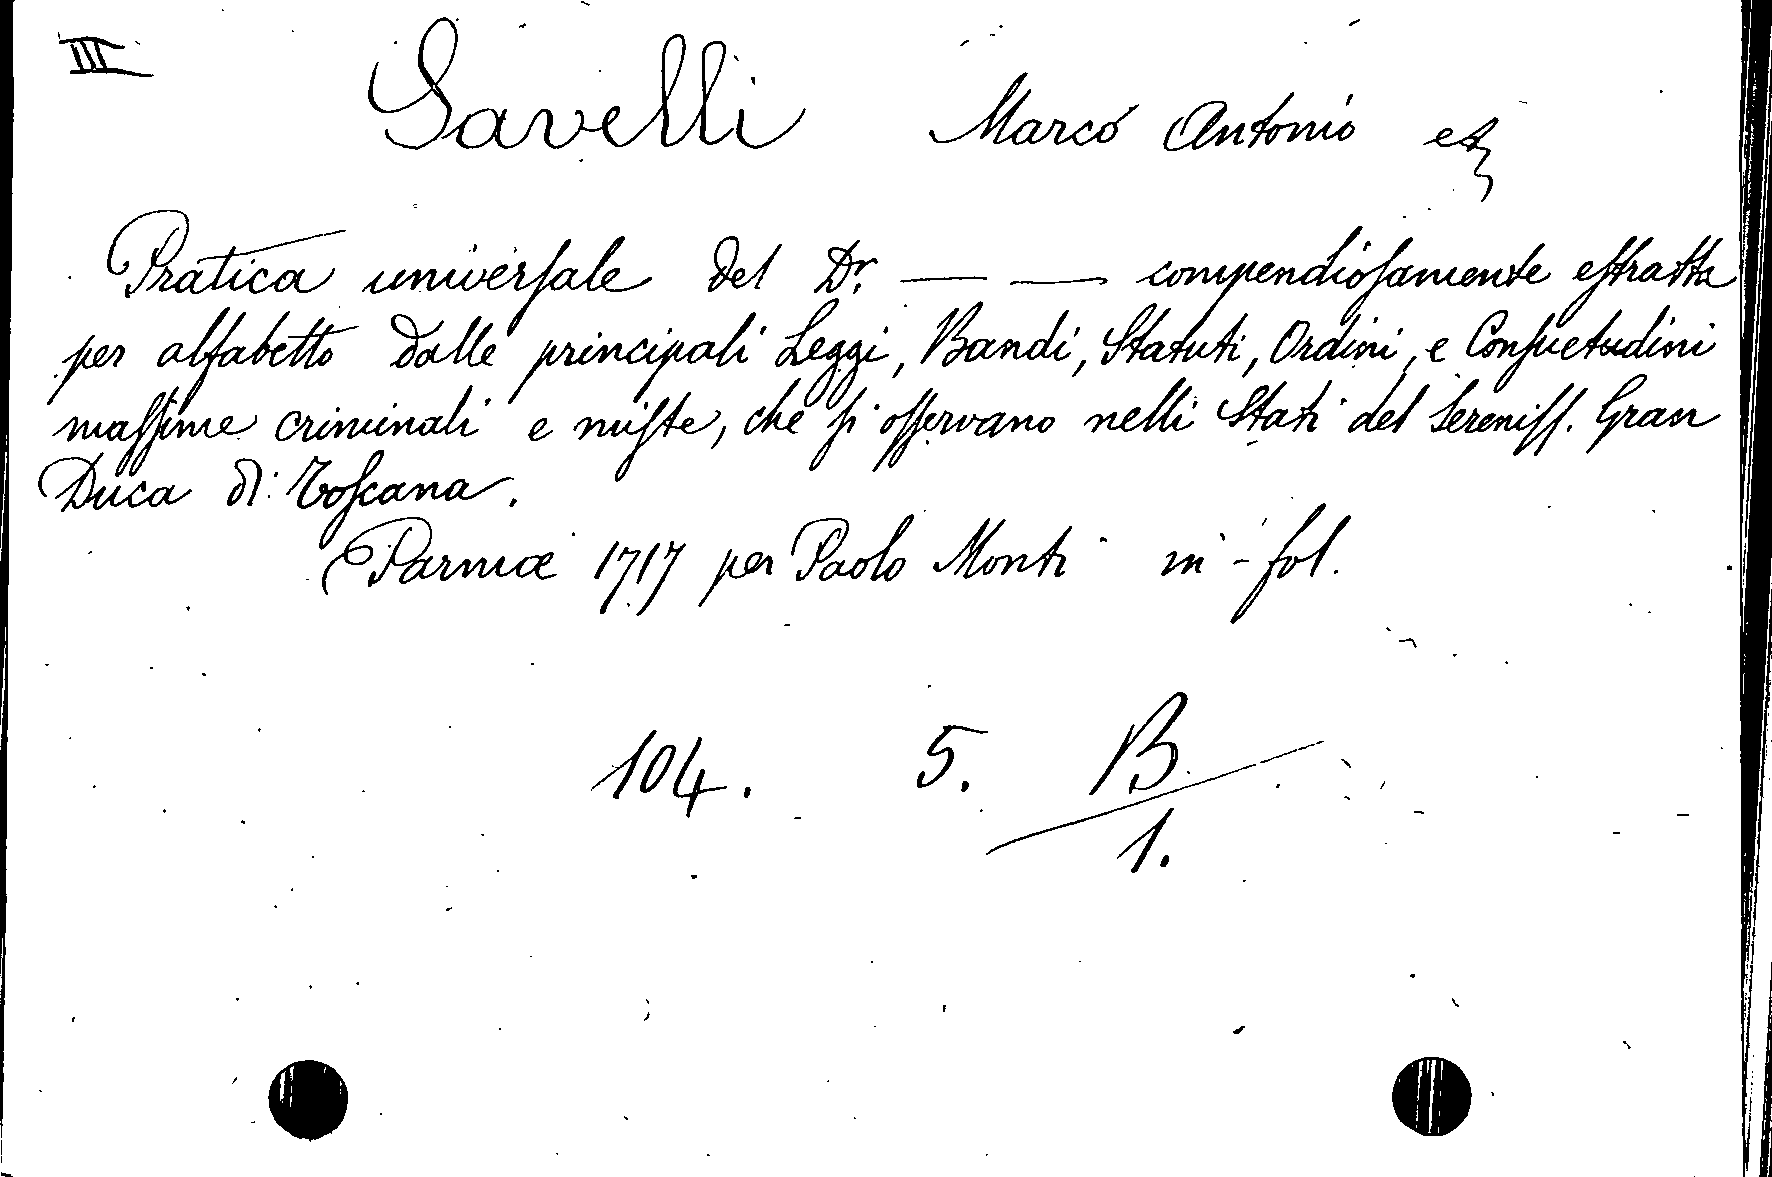 III
Savelli Marco Antonio et
Pratica univerſale del Dr. — — compendioſamente eſtratta
per alfabetto dalle principali Leggi, Bandi, Statuti, Ordini, e Conſuetudini
maſſime criminali e miſte, che ſi oſſervano nelli Stati del Sereniſſ. Gran
Duca di Toſcana.
Parmæ 1717 per Paolo Monti in-fol.
104. 5. B
1.